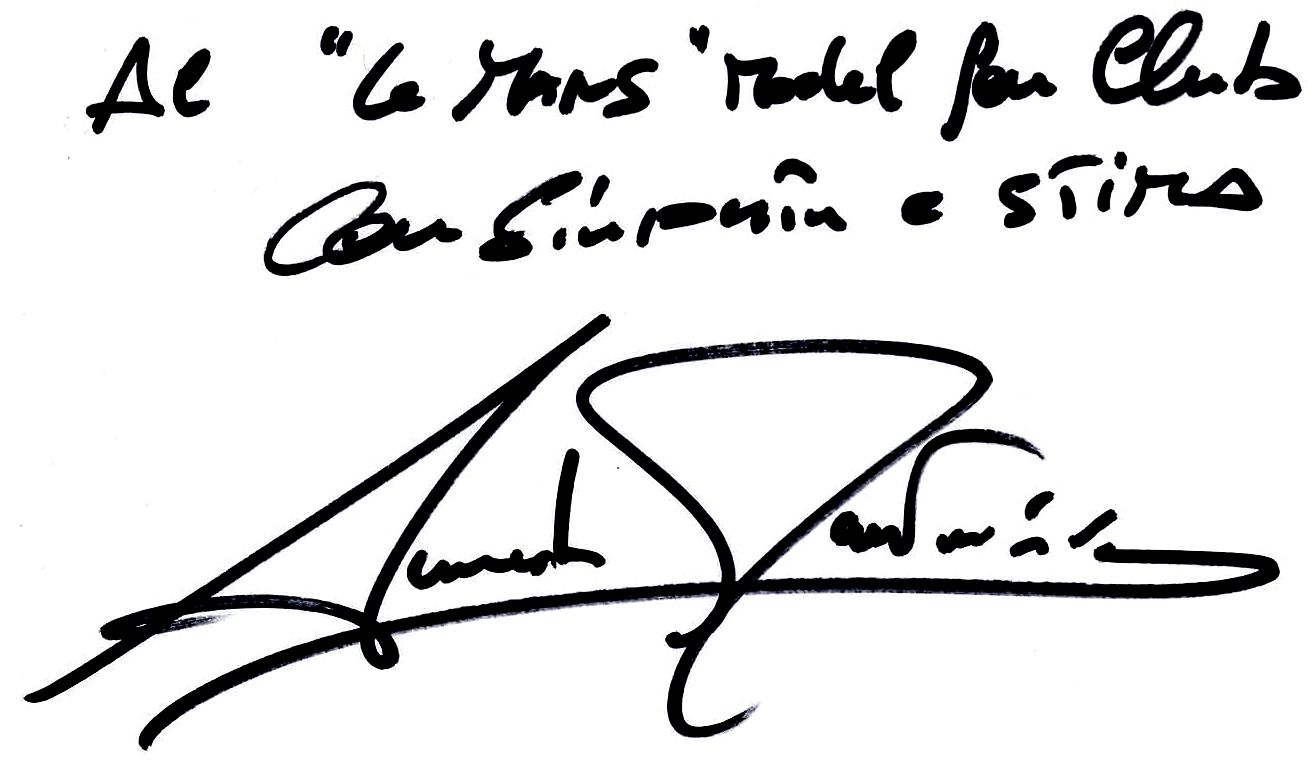 Al "Le Mans" Model Car Club
Con Simpatia e STIMA